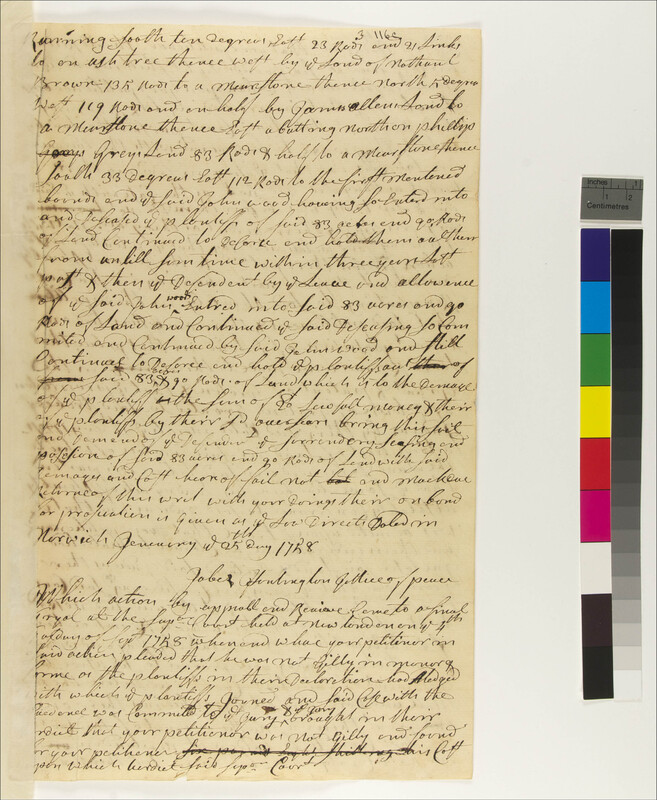 3 116e
Running South ten Degrees East 23 Rods and 21 Links
to on ash tree thence west by ye Land of Nathanl
Brown 135 Rods to a Mearstone thence North 5 degre
West 119 Rods and on half by James allens Land to
a Mearstone thence East a butting North on phillip
Grays Greys Land 83 Rods & half to a Mearstone thence
South 33 Degrees East 112 Rods to the first mentoned
bounds and ye said John wood having so Entred into
and deseased ye plantifs of said 83 acres and 90 Rods
of Land Continued to Deforce and hold them out there
from untill som time within three years Last
past & then ye Defendent by ye Leave and allowence
of ye said John wood Entred into said 83 acres and 90
Rods of Land and Continued ye said Deseasing so Com
mited and Continued by said John wood and still
Continues to Deforce and hold ye plantifs out of
said 83 acres & 90 Rods of Land which is to the Damage
of ye plantifs the som of Lawfull money & their
ye plantifs by their sd bring this suit
and demand ye ye surrendery seasing and
posesion of said 83 acres and 90 Rods of Land with said
Damages and Cost hereof fail not but and make
Returne of this writ with your Doings their on bond
for prosecution is Given as ye Law Directs Dated in
Norwich Jenuary ye 25th Day 1758
Jabez Justice of peace
Which action by appeall and Reviue Came to a final
tryal at the Supr Court held at New london on ye 4th
tusday of Sept 1758 when and whare your petitinor in
said action pleaded that he was not Gilly in manor &
forme as the plantifs in their Declaration had Aledged
with which ye plantifs Joyned and said Case with the
Evedence was Commited to ye Jury & ye Jury brought in their
verdict that your petitionor was not Gilly and found
for your petitioner his Cost
upon which verdict said supr Court
Inches
1
2
Centimetres